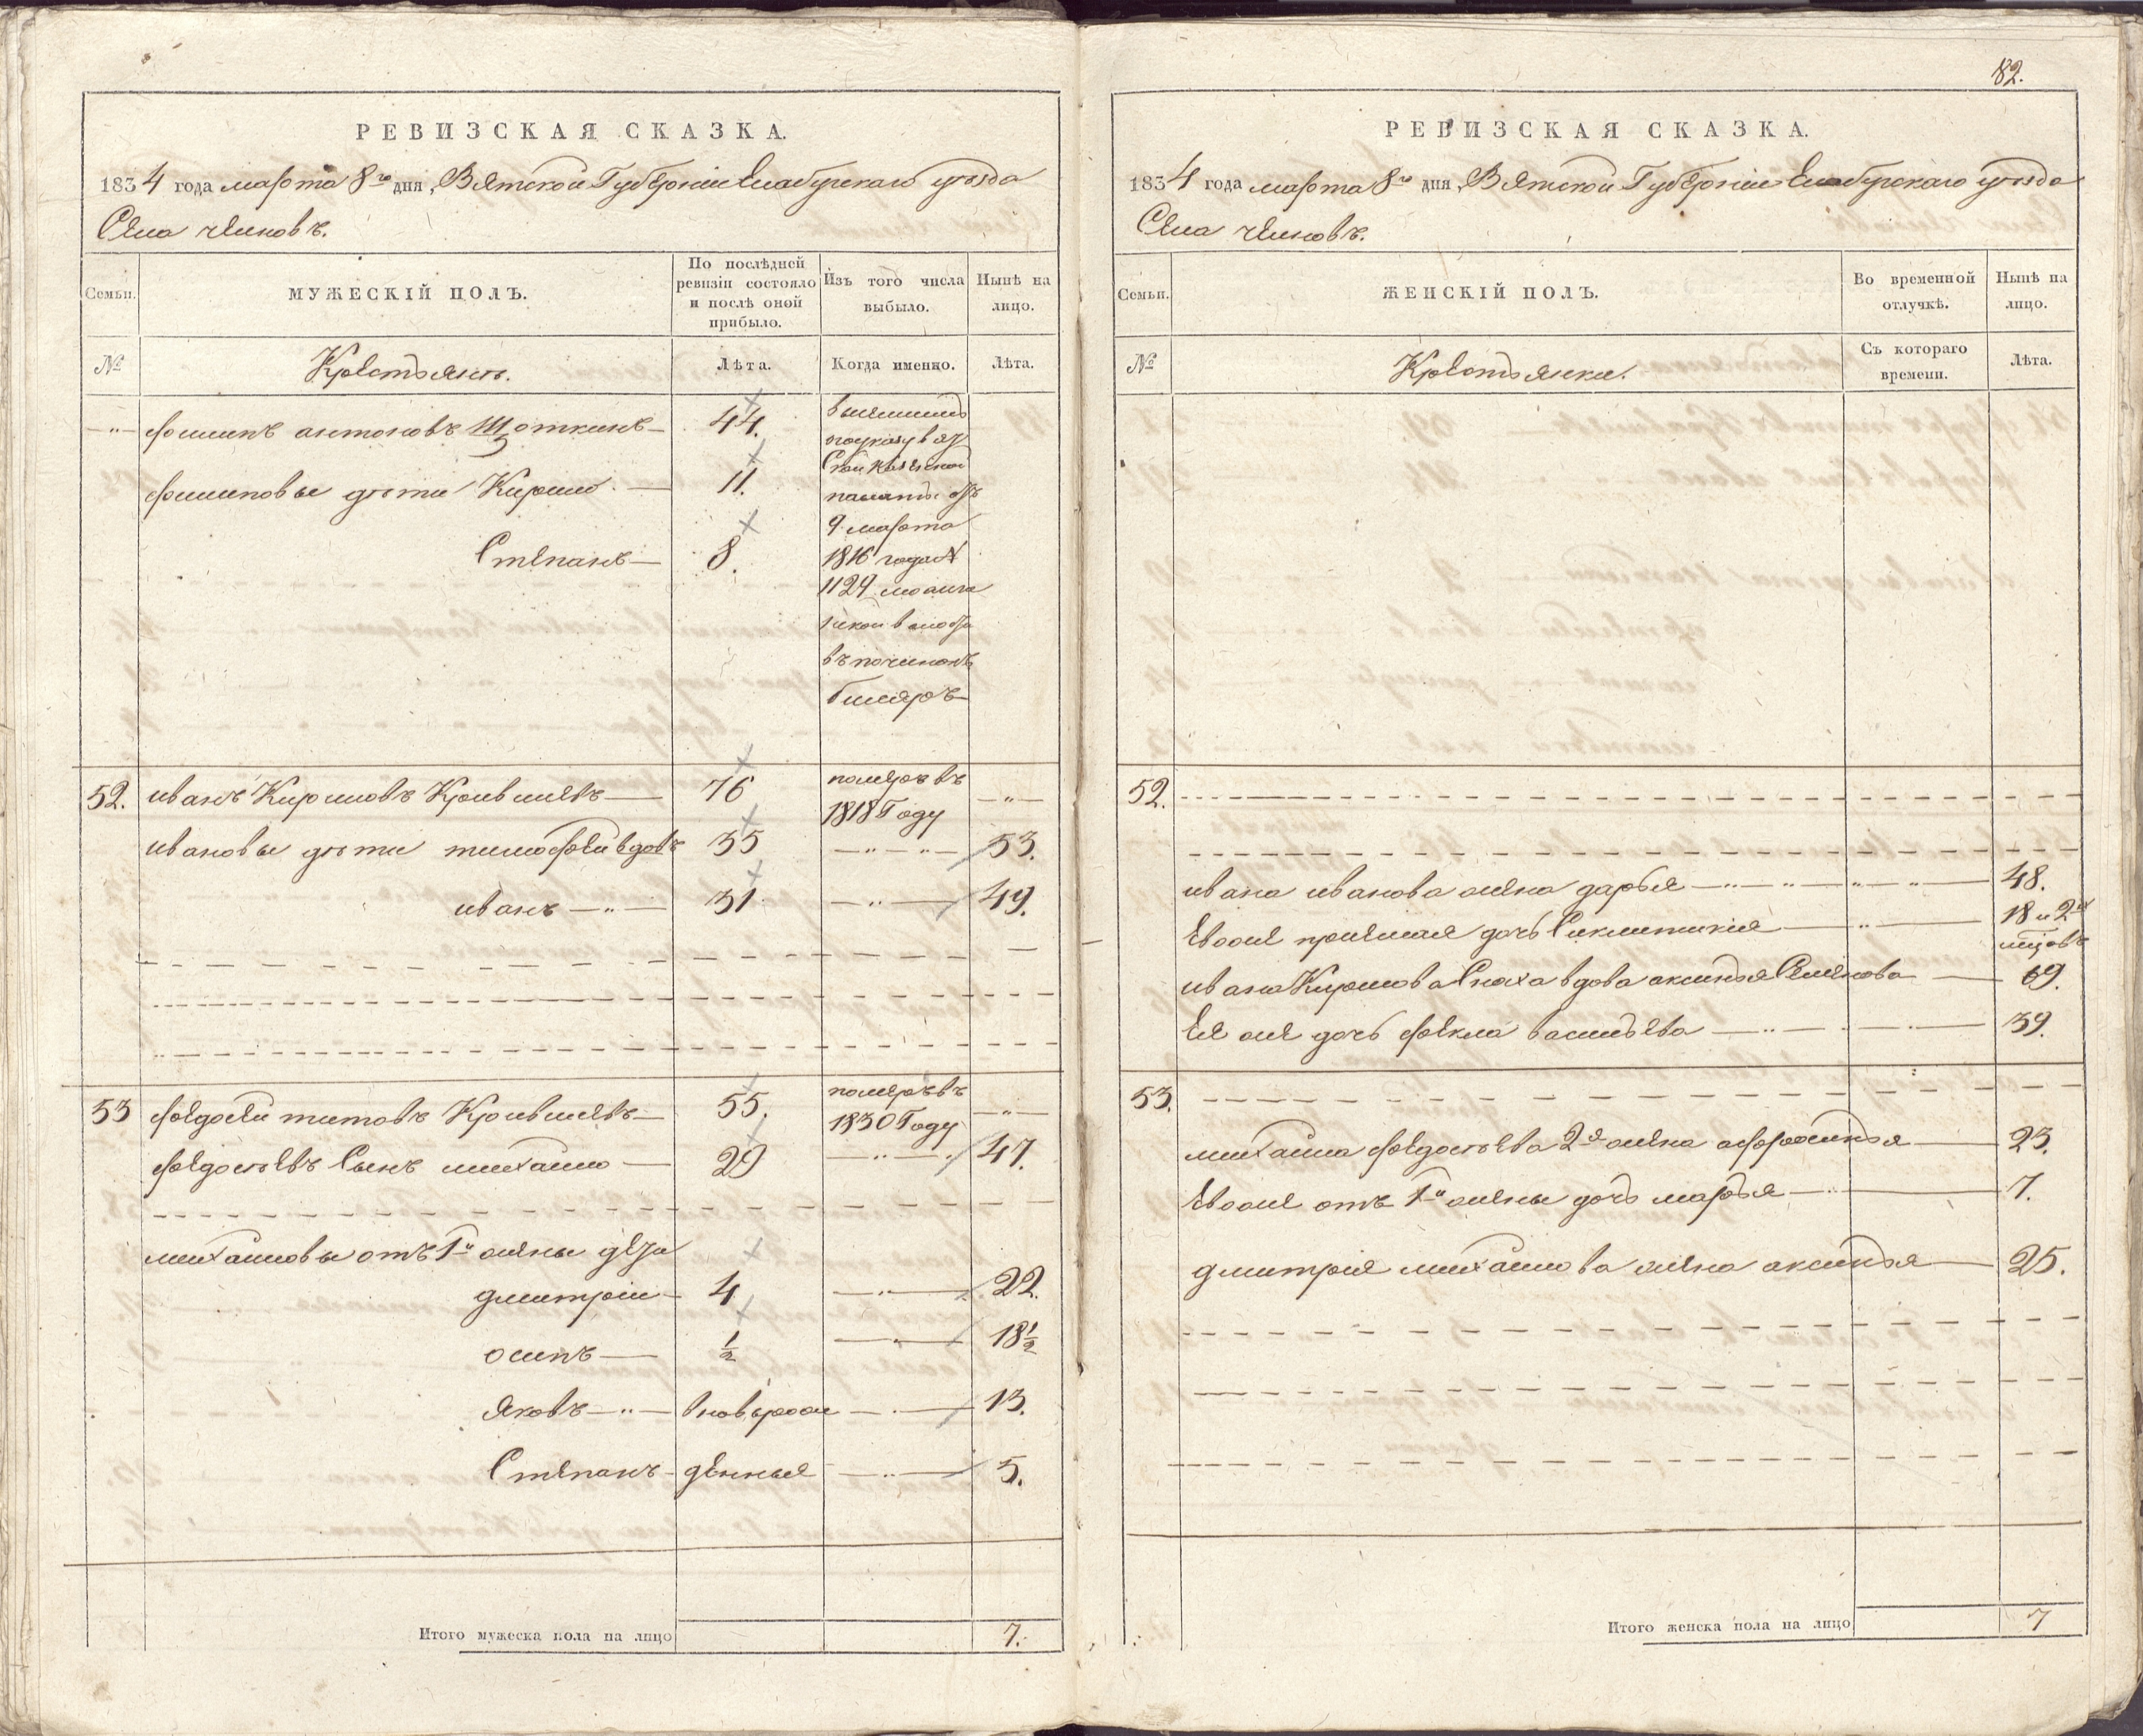 РЕВИЗСКАЯ СКАЗКА.
1834 года марта 8го дня, Вятской Губернiи Елабугскаго уѣзда
Села челновъ.
Семьи.
МУЖЕСКІЙ ПОЛЪ.
По послѣдней ревизіи состояло и послѣ оной прибыло.
Изъ того числа выбыло.
Нынѣ на лицо.
№
Крестьянъ.
Лѣта.
Когда именно.
Лѣта.
филипъ антоновъ Щоткинъ 44.
филиповы дѣти Кирило 11.
Степанъ 8.
9 марта
1816 года №
1124
въ починокъ
52. иванъ Кириловъ Кривилевъ 76 померъ въ
1818 Году
ивановы дѣти тимофей вдовъ 35 53.
иванъ 31 49.
53 федосей титовъ Кривилевъ 55. померъ въ
1830 Году
федосѣевъ Сынъ михайло 29 47.
михайловы отъ 1й жены дети
дмитрiй 4 22.
осипъ ½ 18½
яковъ вновьрож 13.
Степанъ денныя 5.
Итого мужеска пола на лицо 7.
82.
РЕВИЗСКАЯ СКАЗКА.
1834 года марта 8го дня, Вятской Губернiи Елабугскаго уѣзда
Села челновъ.
Семьи.
ЖЕНСКІЙ ПОЛЪ.
Во временной отлучкѣ.
Нынѣ на лицо.
№
Крестьянки.
Съ котораго времени.
Лѣта.
52.
ивана иванова жена дарья 48.
Евоже прiемная дочь Сиклитикия 18 и 2хъ
мцовъ
ивана Кирилова Сноха вдова аксинья Семенова 69.
Ея же дочь фекла васильева 39.
53.
михаила федосѣева 2я жена афросинья 23.
Евоже отъ 1й жены дочь марья 7.
дмитрия михайлова жена аксинья 25.
Итого женска пола на лицо 7